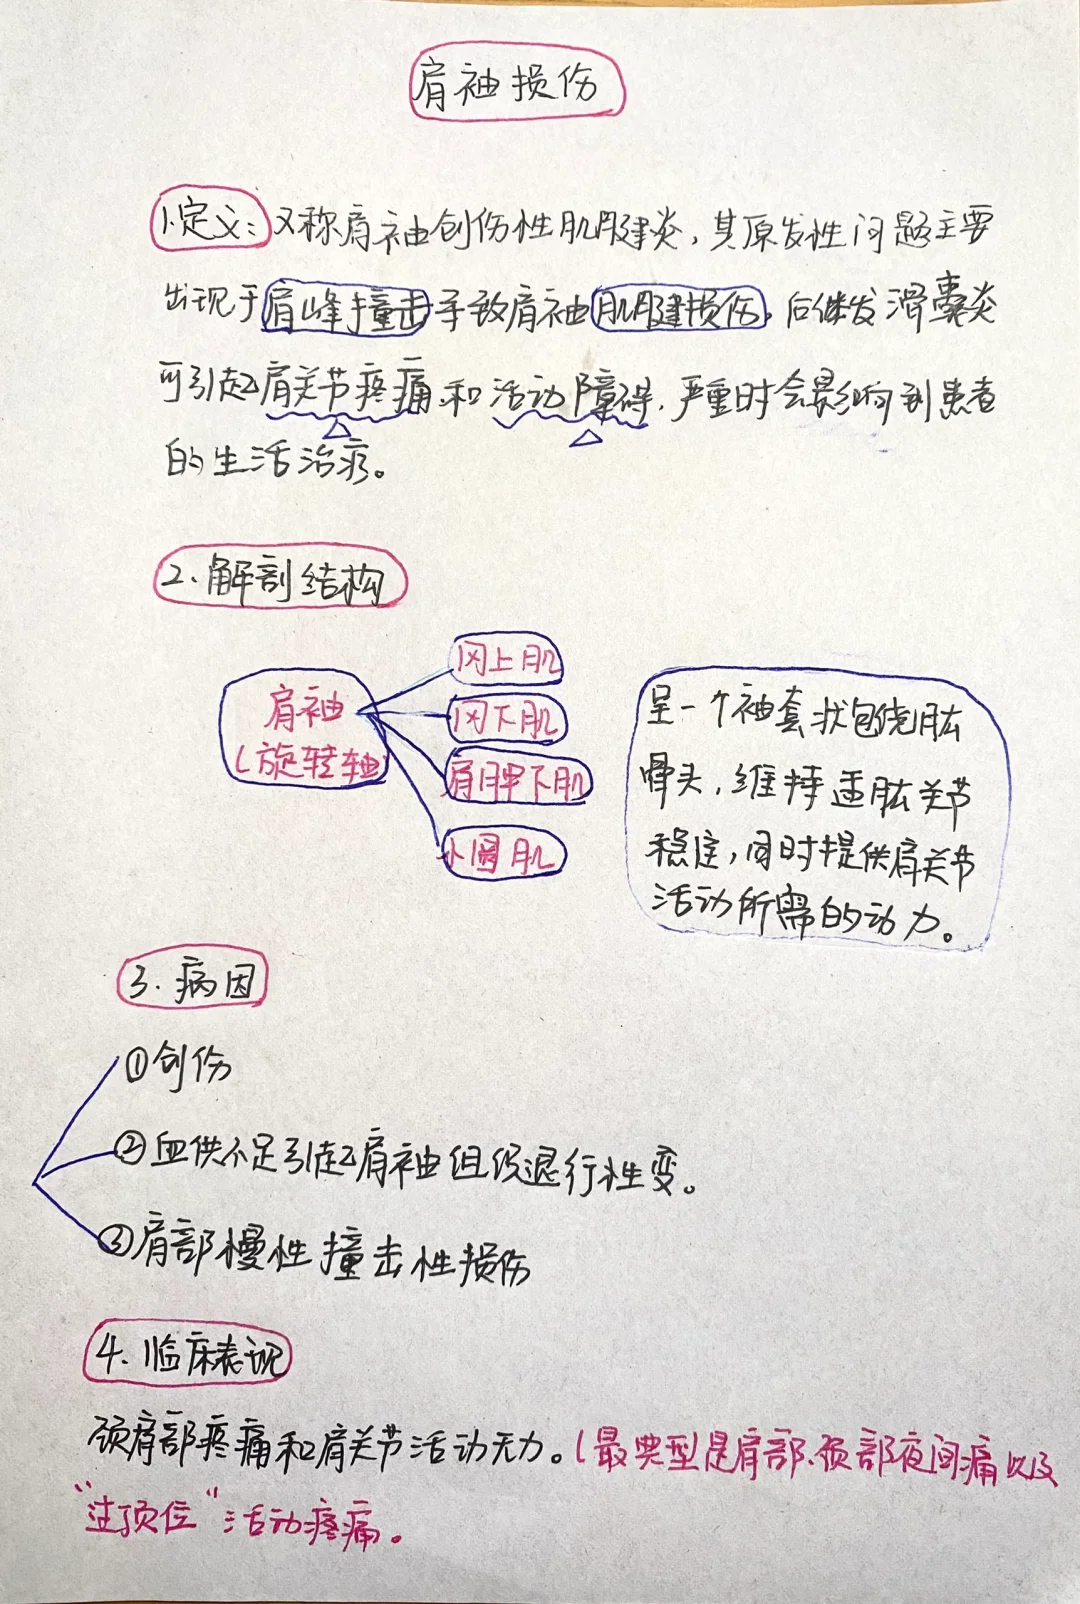 肩袖损伤
1.定义:又称肩袖创伤性肌腱炎,其原发性问题主要
出现于肩峰撞击导致肩袖肌腱损伤,后继发滑囊炎
可引起肩关节疼痛和活动障碍,严重时会影响到患者
的生活治疗。
2.解剖结构
肩袖
(旋转轴
冈上肌
冈下肌
肩胛下肌
小圆肌
呈一个袖套状包绕肱
骨头,维持盂肱关节
稳定,同时提供肩关节
活动所需的动力。
3.病因
①创伤
②血供不足引起肩袖组织退行性变。
③肩部慢性撞击性损伤
4.临床表现
颈肩部疼痛和肩关节活动无力。(最典型是肩部、颈部夜间痛以及
“过顶位”活动疼痛。